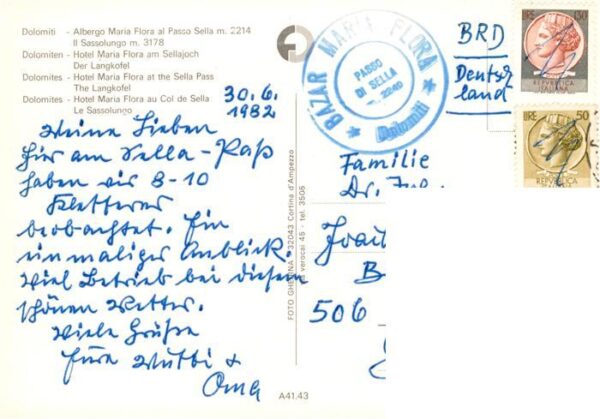 Dolomiti - Albergo Maria Flora al Passo Sella m. 2214
Il Sassolungo m. 3178
Dolomiten - Hotel Maria Flora am Sellajoch
Der Langkofel
Dolomites - Hotel Maria Flora at the Sella Pass
The Langkofel
Dolomites - Hotel Maria Flora au Col de Sella
Le Sassolungo
30.6.
1982
Meine Lieben
Hier am Sella-Paß
haben wir 8-10
Kletterer
beobachtet. Ein
einmaliger Anblick.
Viel Betrieb bei diesem
schönen Wetter.
Viele Grüße
Eure Mutti +
Oma
A41.43
FOTO GHEDINA - 32043 Cortina d'Ampezzo
verocai 45 - tel. 3505
BAZAR MARIA FLORA
PASSO
DI SELLA
m. 2240
Dolomiti
BRD
Deutsch
land
LIRE 130
REPVBBLICA
ITALIANA
LIRE 50
REPVBBLICA
Familie
Dr.
B
506